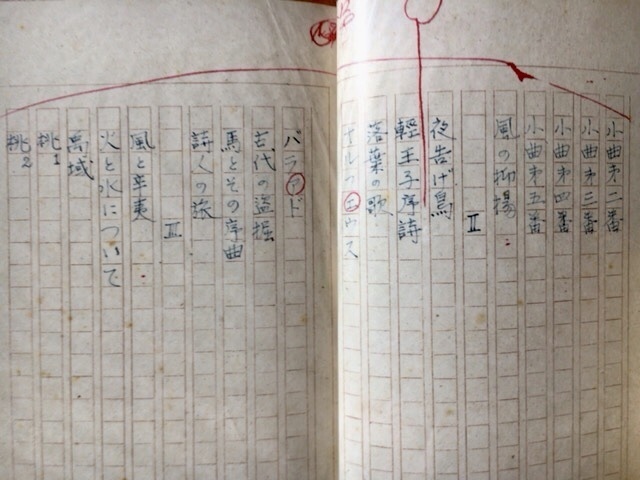 小曲第二番
小曲第三番
小曲第四番
小曲第五番
風の抑揚
Ⅱ
夜告げ鳥
軽王子序詩
落葉の歌
オルフエウス
バラアド
古代の盗掘
馬とその序曲
詩人の旅
Ⅲ
風と辛夷
火と水について
域
桃1
桃2